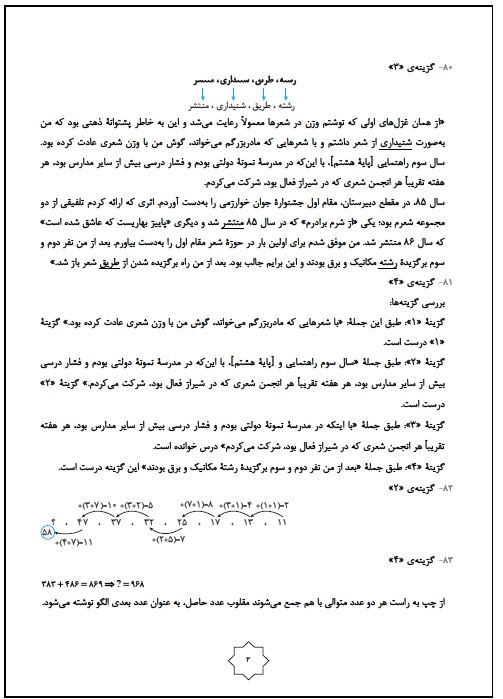 ۸۰- گزینه‌ی «۳»
رسته، طریق، سنیداری، منتسر
رشته ، طریق ، شنیداری ، منتشر
«از همان غزل‌های اولی که نوشتم وزن در شعرها معمولاً رعایت می‌شد و این به خاطر پشتوانهٔ ذهنی بود که من
به‌صورت شنیداری از شعر داشتم و با شعرهایی که مادربزرگم می‌خواند، گوش من با وزن شعری عادت کرده بود.
سال سوم راهنمایی [پایهٔ هشتم]، با این‌که در مدرسهٔ نمونهٔ دولتی بودم و فشار درسی بیش از سایر مدارس بود، هر
هفته تقریباً هر انجمن شعری که در شیراز فعال بود، شرکت می‌کردم.
سال ۸۵، در مقطع دبیرستان، مقام اول جشنوارهٔ جوان خوارزمی را به‌دست آوردم. اثری که ارائه کردم تلفیقی از دو
مجموعه شعرم بود؛ یکی «از شرم برادرم» که در سال ۸۵ منتشر شد و دیگری «پاییز بهاریست که عاشق شده است»
که سال ۸۶ منتشر شد. من موفق شدم برای اولین بار در حوزهٔ شعر مقام اول را به‌دست بیاورم. بعد از من نفر دوم و
سوم برگزیدهٔ رشته مکانیک و برق بودند و این برایم جالب بود. بعد از من راه برگزیده شدن از طریق شعر باز شد.»
۸۱- گزینه‌ی «۴»
بررسی گزینه‌ها:
گزینهٔ «۱»: طبق این جملهٔ: «با شعرهایی که مادربزرگم می‌خواند، گوش من با وزن شعری عادت کرده بود.» گزینهٔ
«۱» درست است.
گزینهٔ «۲»: طبق جملهٔ «سال سوم راهنمایی و [پایهٔ هشتم]، با این‌که در مدرسهٔ نمونهٔ دولتی بودم و فشار درسی
بیش از سایر مدارس بود، هر هفته تقریباً هر انجمن شعری که در شیراز فعال بود، شرکت می‌کردم.» گزینهٔ «۲»
درست است.
گزینهٔ «۳»: طبق جملهٔ «با اینکه در مدرسهٔ نمونهٔ دولتی بودم و فشار درسی بیش از سایر مدارس بود، هر هفته
تقریباً هر انجمن شعری که در شیراز فعال بود، شرکت می‌کردم» درس خوانده است.
گزینهٔ «۴»: طبق جملهٔ «بعد از من نفر دوم و سوم برگزیدهٔ رشتهٔ مکانیک و برق بودند» این گزینه درست است.
۸۲- گزینه‌ی «۲»
+(۳+۷)=۱۰ +(۳+۲)=۵ +(۷+۱)=۸ +(۳+۱)=۴ +(۱+۱)=۲
؟ ، ۴۷ ، ۳۷ ، ۳۲ ، ۲۵ ، ۱۷ ، ۱۳ ، ۱۱
۵۸ +(۴+۷)=۱۱ +(۲+۵)=۷
۸۳- گزینه‌ی «۴»
۳۸۳ + ۴۸۶ = ۸۶۹ ⇒ ? = ۹۶۸
از چپ به راست هر دو عدد متوالی با هم جمع می‌شوند مقلوب عدد حاصل، به عنوان عدد بعدی الگو نوشته می‌شود.
۲